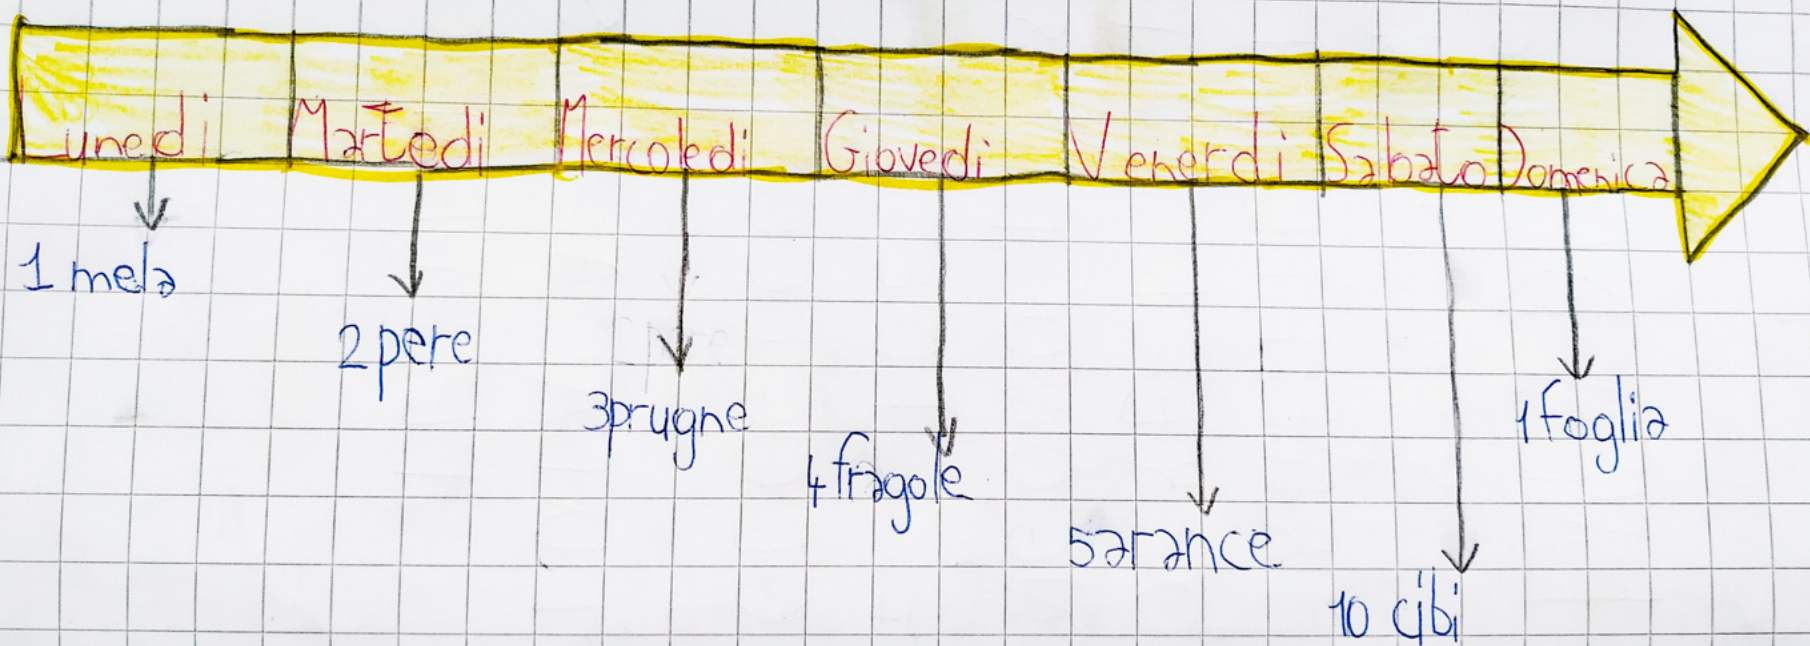 Lunedi Martedi Mercoledi Giovedi Venerdi Sabato Domenica
1 mela
2 pere
3 prugne
4 fragole
5 arance
10 cibi
1 foglia